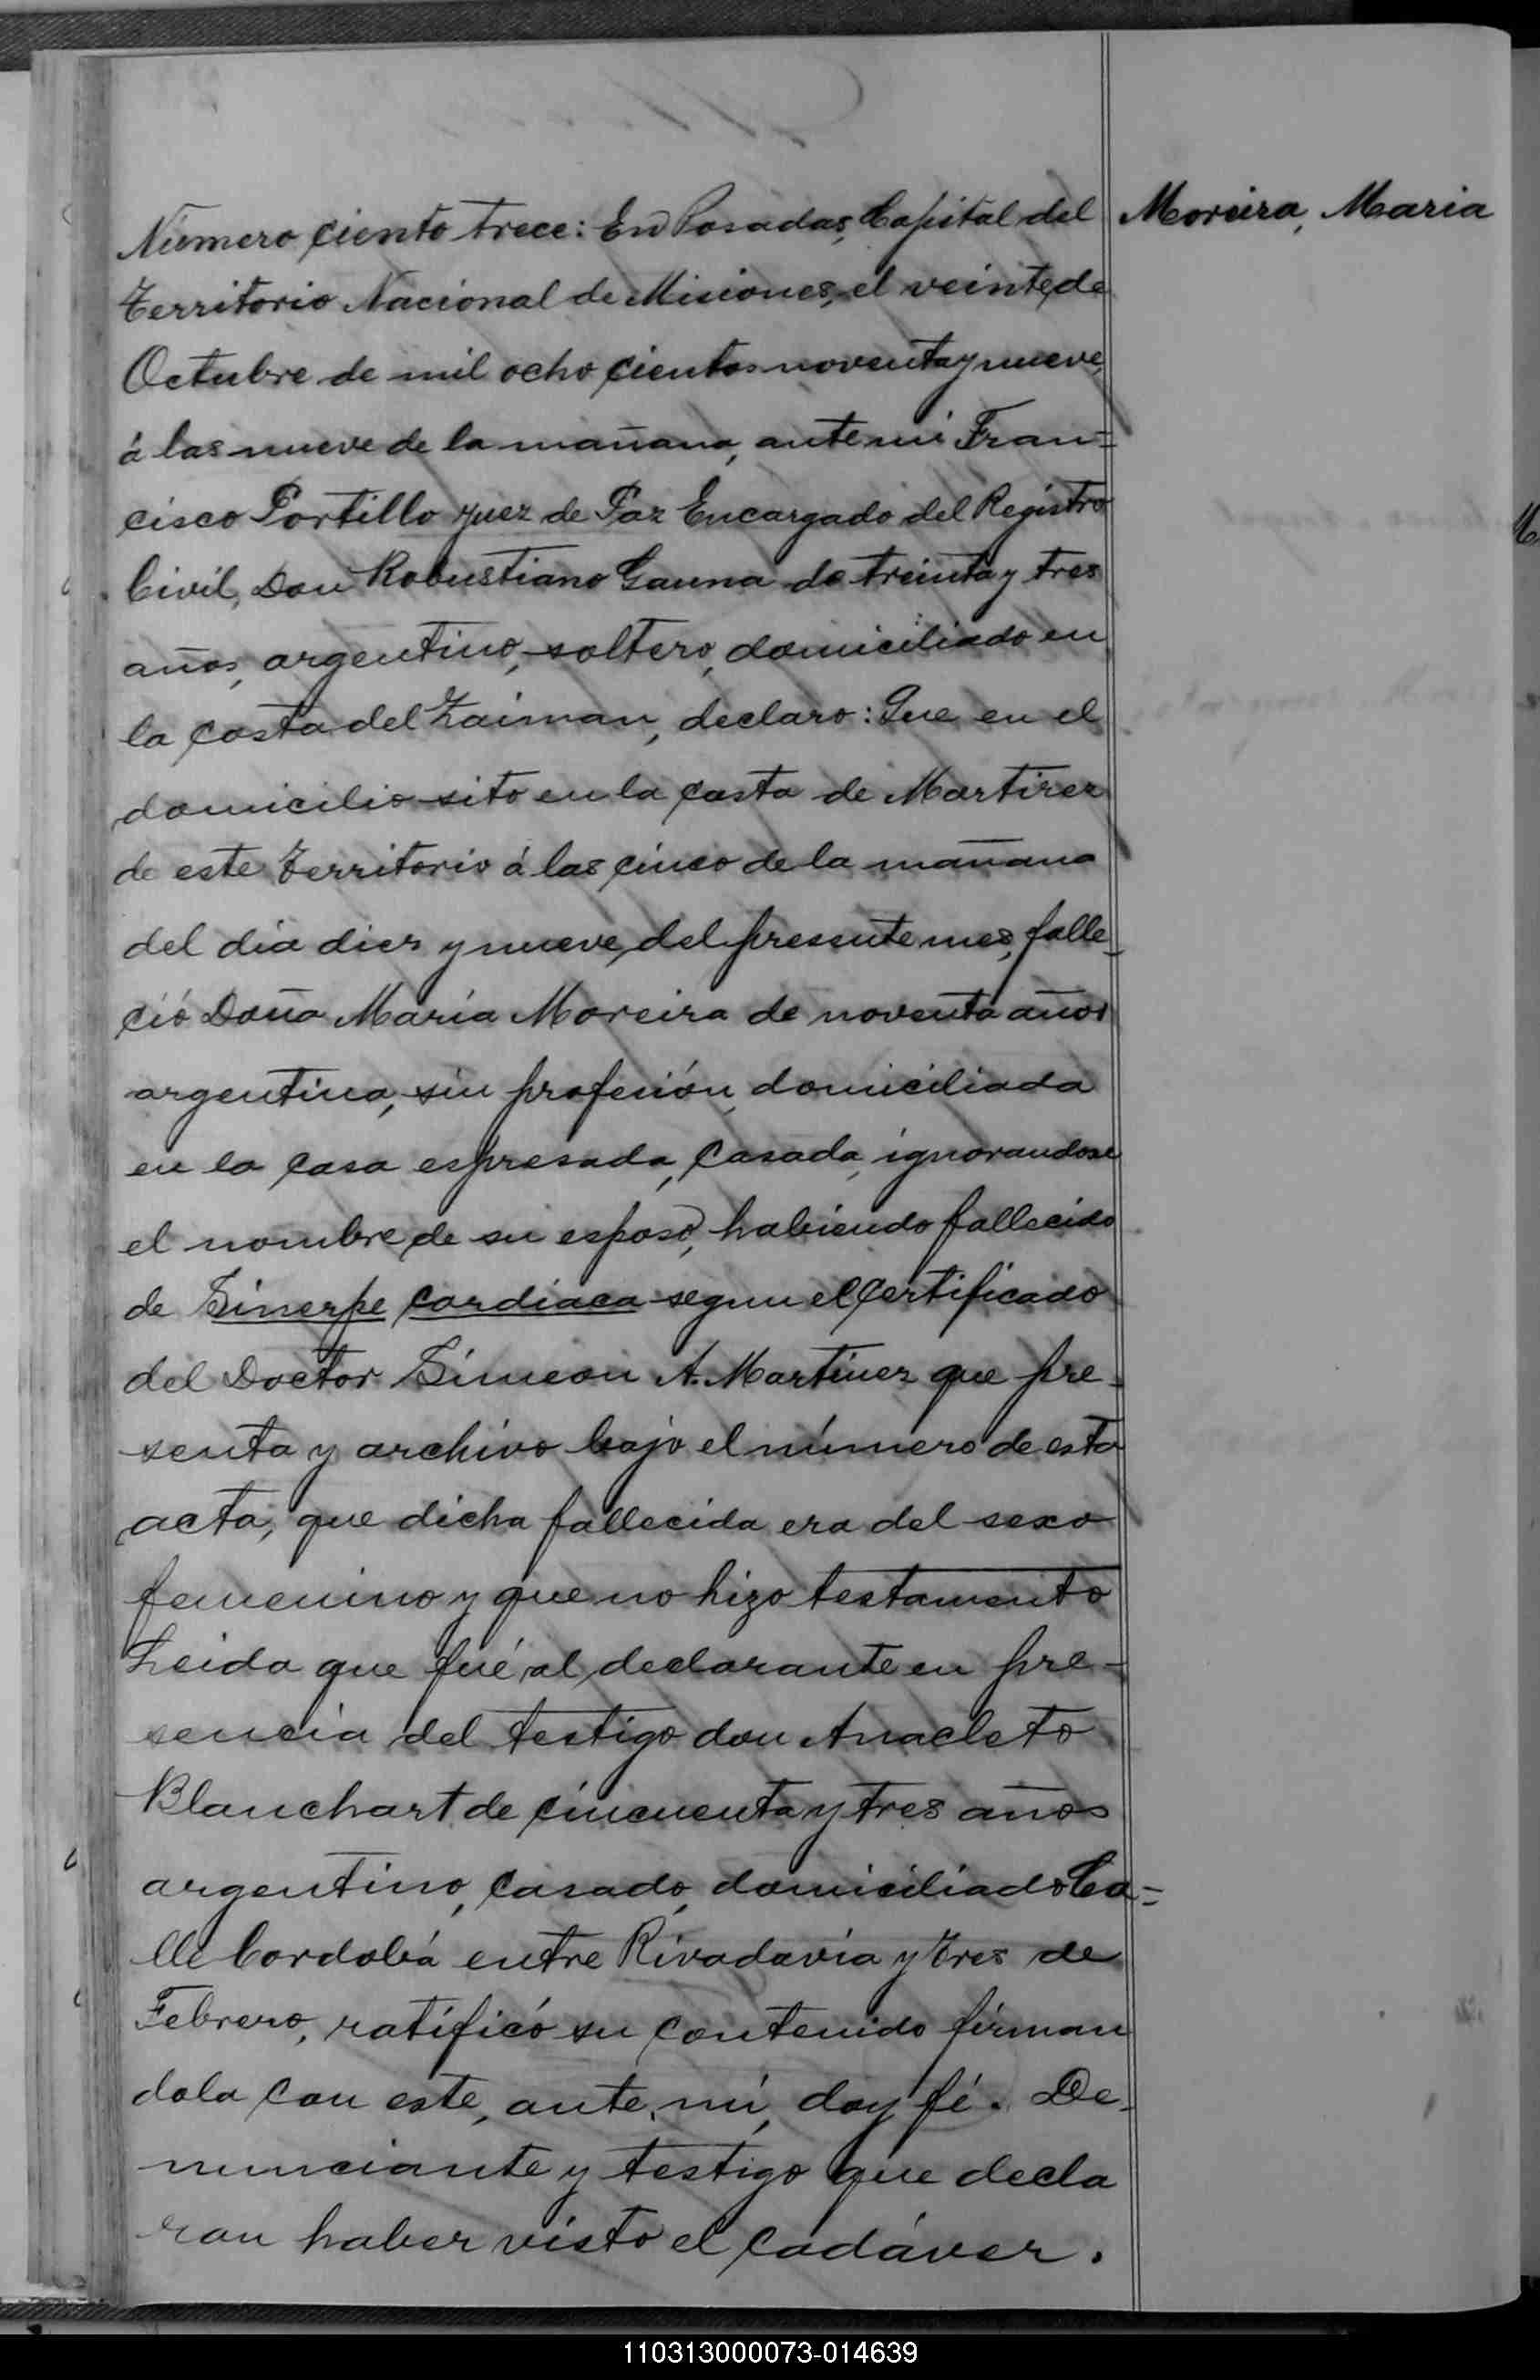 Número ciento trece: En Posadas, Capital del
Moreira, Maria
Territorio Nacional de Misiones, el veinte de
Octubre de mil ocho cientos noventa y nueve,
á las nueve de la mañana, ante mi Fran=
cisco Portillo Juez de Paz Encargado del Registro
Civil, Don Robustiano Gauna de treinta y tres
años, argentino, soltero, domiciliado en
la costa del Zaiman, declaro: Que en el
domicilio sito en la costa de Martires
de este Territorio á las cinco de la mañana
del dia dies y nueve, del presente mes, falle-
ció Doña María Moreira de noventa años
argentina, sin profesión, domiciliada
en la casa espresada, casada, ignorandose
el nombre de su esposo, habiendo fallecido
de Sinerpe cardiaca segun el certificado
del Doctor Simeon A. Martinez que pre-
senta y archivo bajo el número de esta
acta, que dicha fallecida era del sexo
femenino y que no hizo testamento
Leida que fué al declarante en pre-
sencia del testigo don Anacleto
Blanchart de cincuenta y tres años
argentino, casado, domiciliado Ca=
lle Cordobá entre Rivadavia y Tres de
Febrero, ratificó su contenido firman
dola con este, ante mi, doy fé. De-
nunciante y testigo que decla
ran haber visto el cadáver.
110313000073-014639